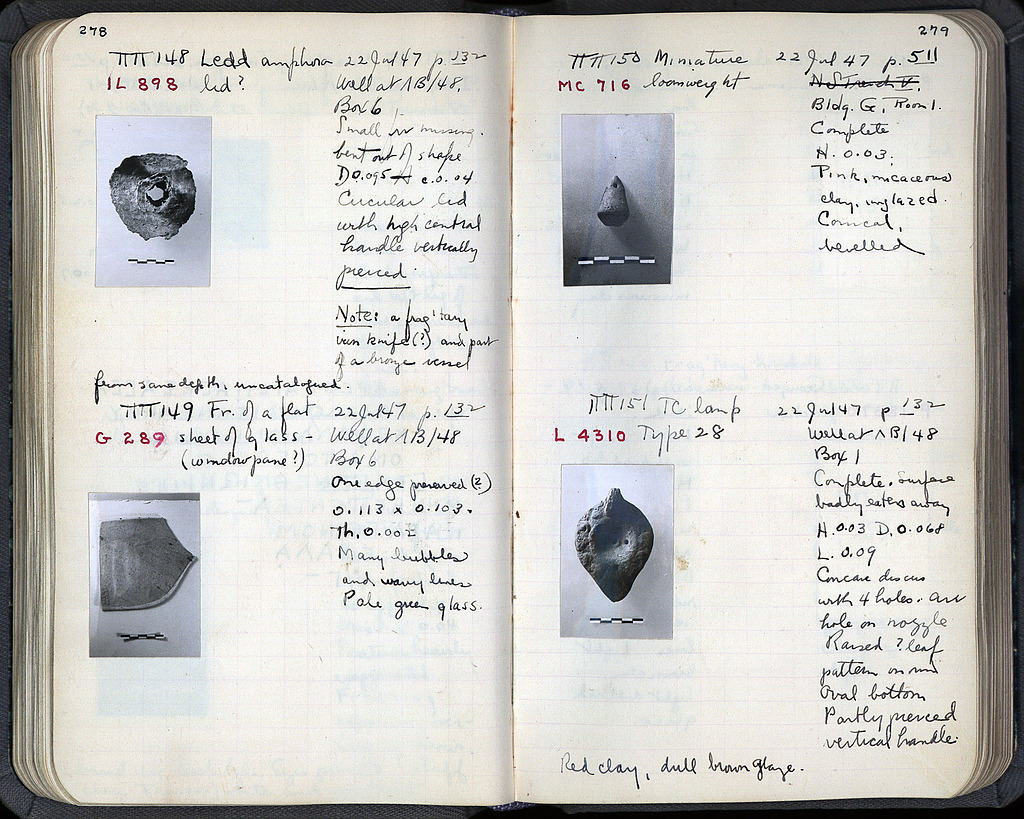 278
ΠΠ 148 Lead amphora 22 Jul 47 p. 132
IL 898 lid? Well at ΛB/48,
Box 6
Small missing.
bent out of shape
D 0.095 H c. 0.04
Circular lid
with high central
handle vertically
pierced.
Note: a frag'tary
iron knife(?) and part
of a bronze vessel
from same depth, uncatalogued.
ΠΠ 149 Fr. of a flat 22 Jul 47 p. 132
G 289 sheet of glass - Well at ΛB/48
(window pane?) Box 6
One edge preserved (?)
0.113 x 0.103.
Th. 0.002
Many bubbles
and wavy lines
Pale green glass.
279
ΠΠ 150 Miniature 22 Jul 47 p. 511
MC 716 loomweight N S Trench V,
Bldg. G, Room 1.
Complete
H. 0.03.
Pink, micaceous
clay, unglazed.
Conical,
bevelled
ΠΠ 151 TC lamp 22 Jul 47 p 132
L 4310 Type 28 Well at ΛB/48
Box 1
Complete. Surface
badly eaten away
H. 0.03 D. 0.068
L. 0.09
Concave discus
with 4 holes. air
hole on nozzle
Raised ? leaf
pattern on rim
Oval bottom
Partly pierced
vertical handle.
Red clay, dull brown glaze.